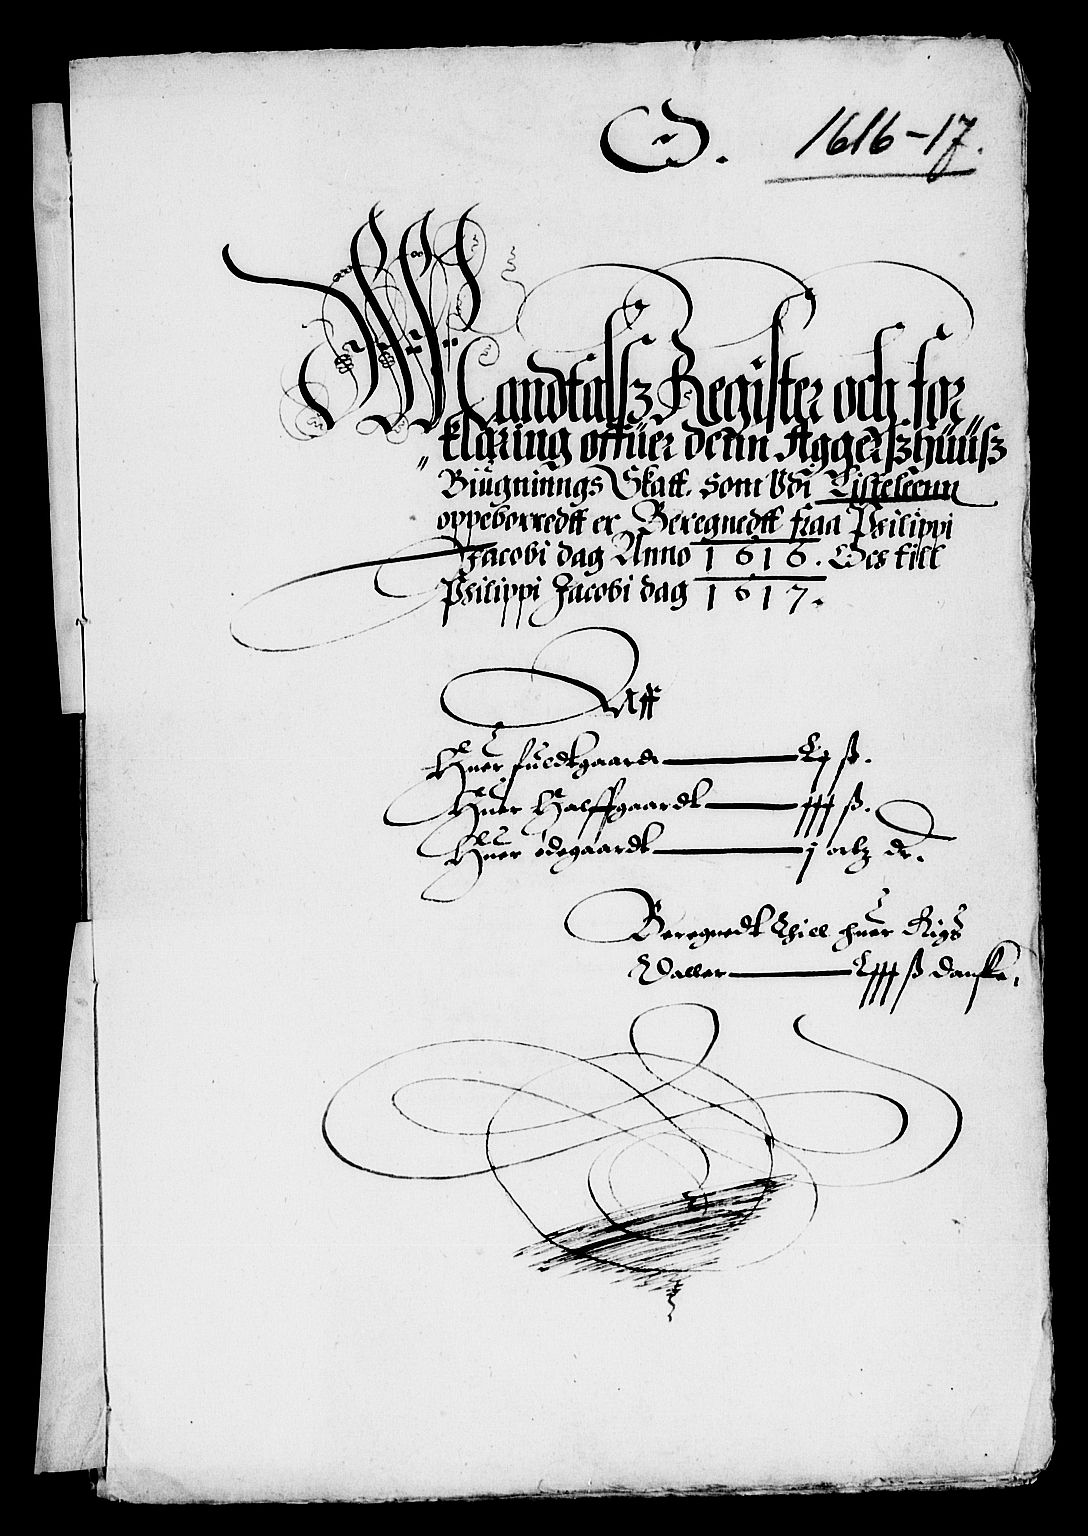 D. 1616-17.
Mandtalsz Register och for
klaring offuer denn Aggerszhuusz
Biugninngs Skatt. som Vdi Listeleenn
oppeborredtt er Beregnedtt fraa Philippi
Jacobi dag Anno 1616. Och till
Philippi Jacobi dag 1617.
Aff
Huer fuldtgaardt
Huer Halffgaardt iij ß.
Huer ødegaardt j ortz dr.
Beregnedt thill huer Rigs
Daller ß danske.